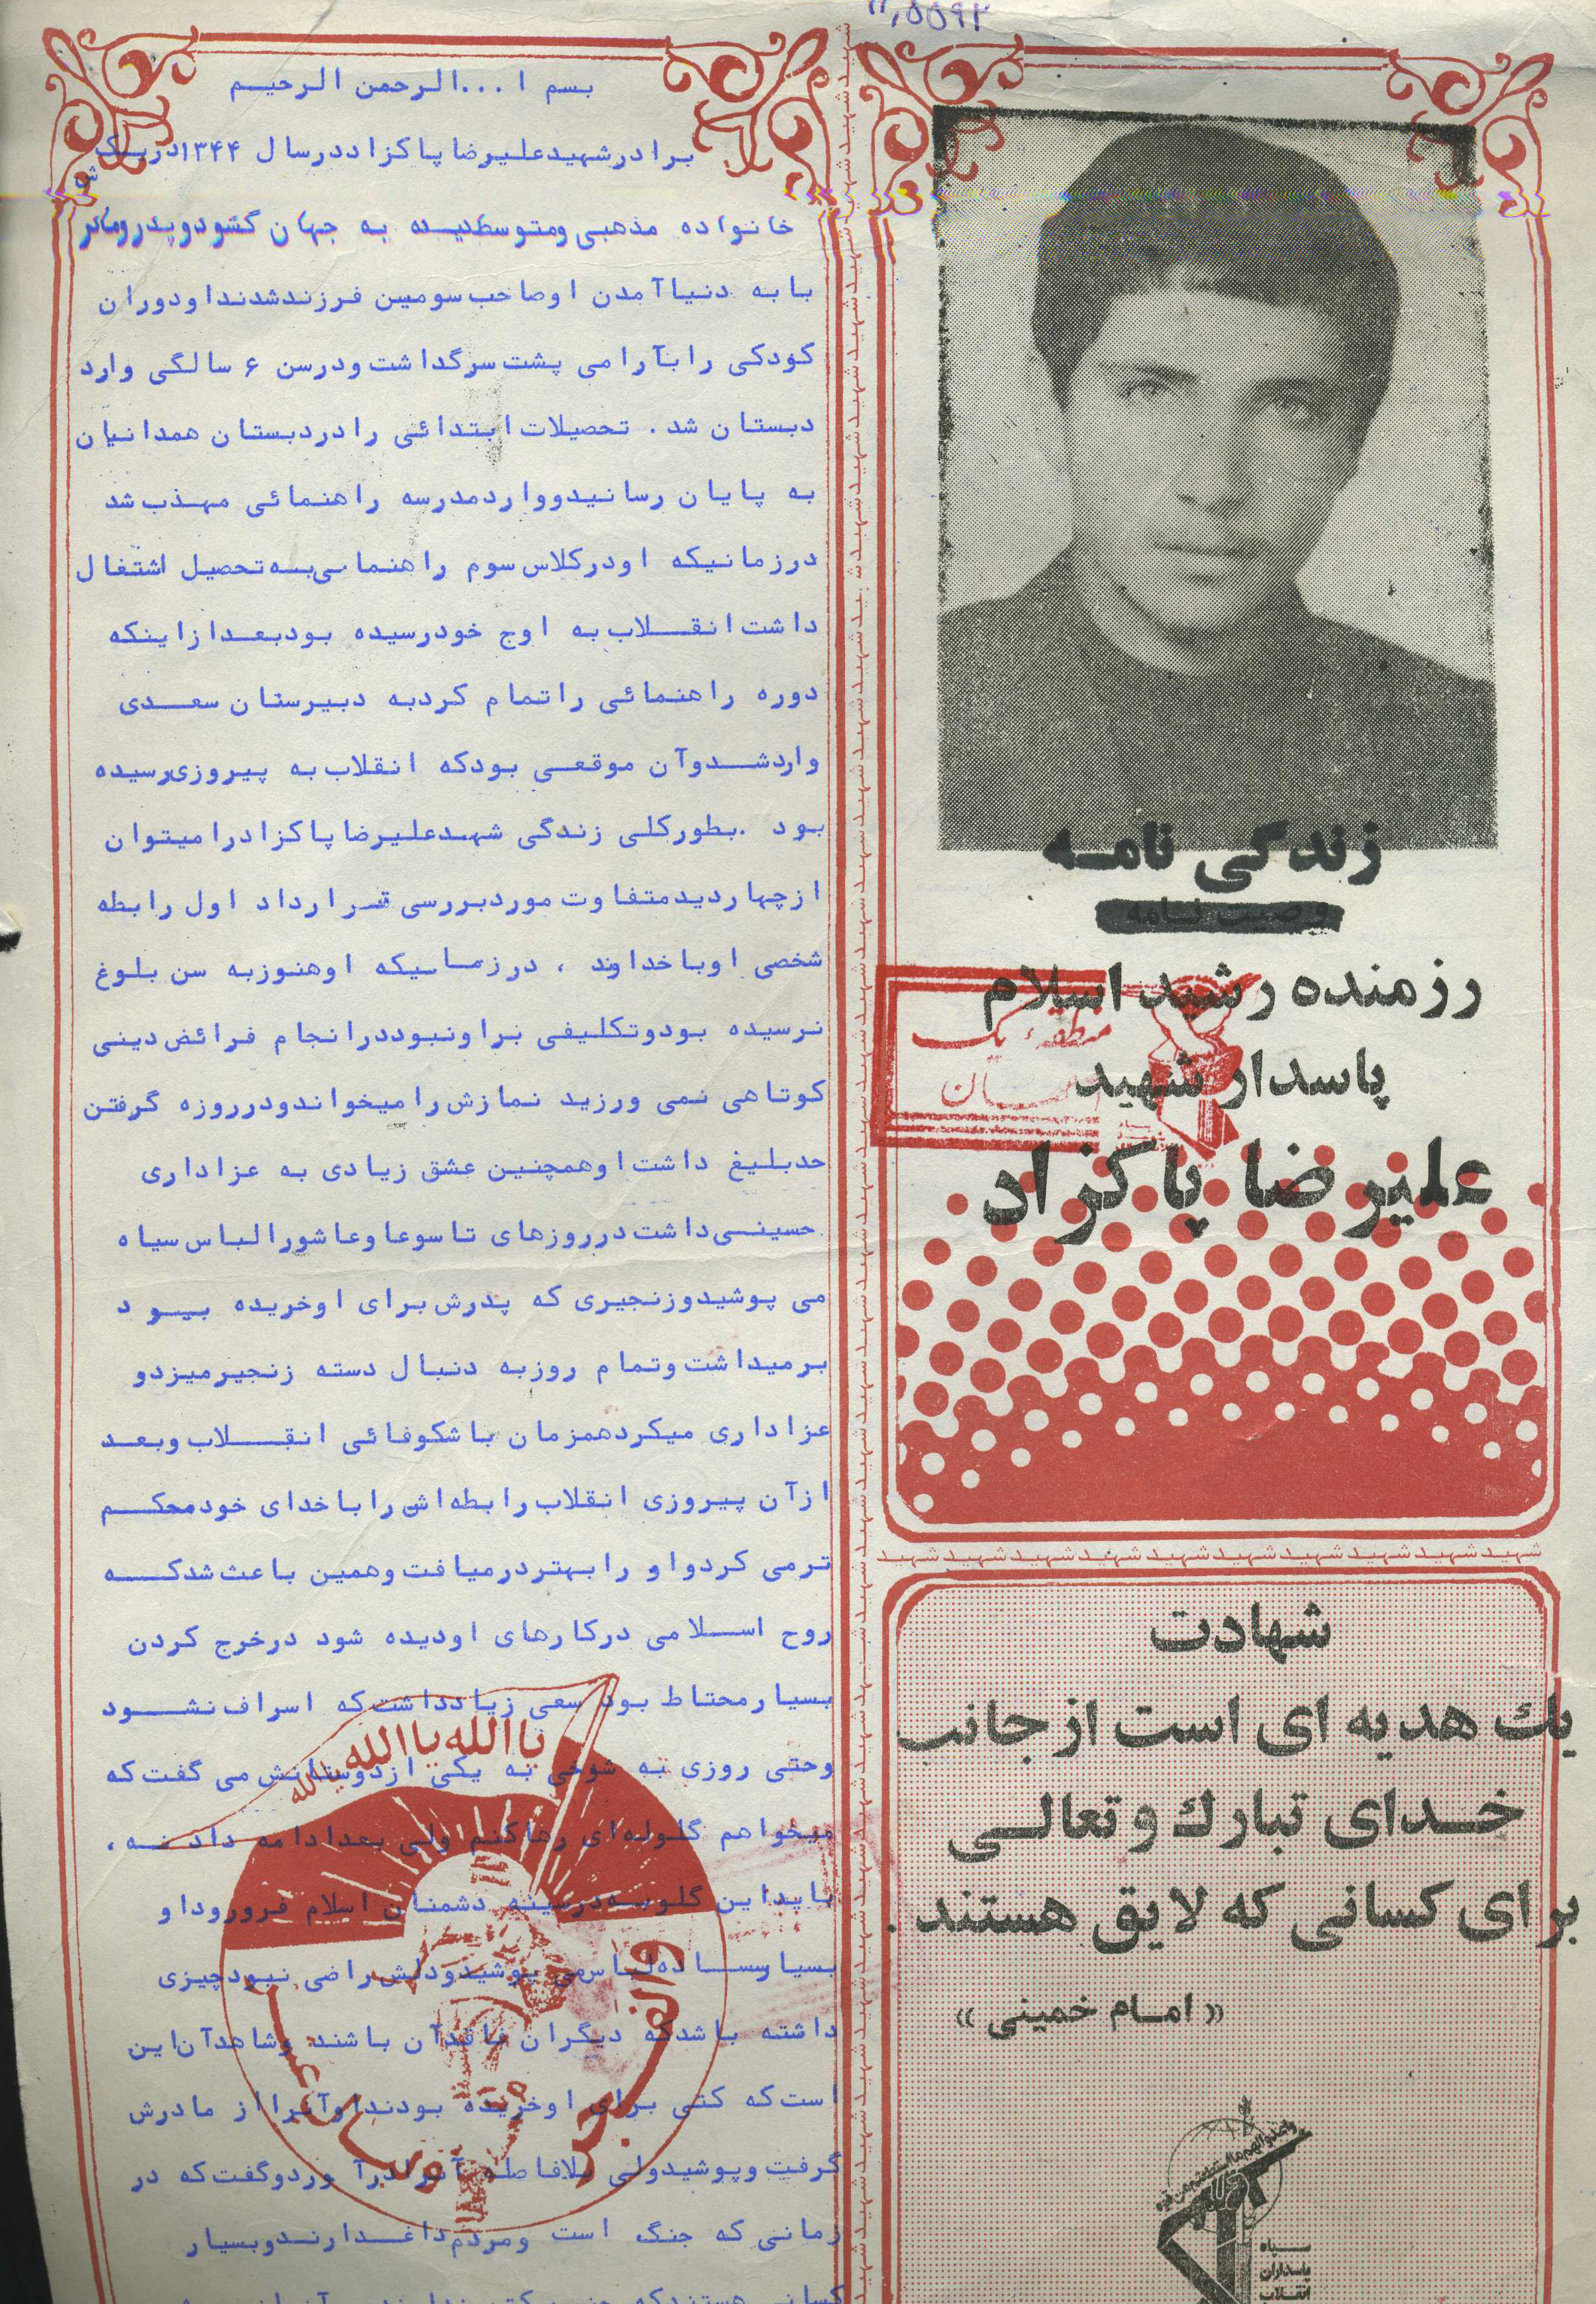 ۱۱,۵۵۹۲
زندگی نامه
وصیت نامه
رزمنده رشید اسلام
پاسدار شهید
علیرضا پاکزاد
منطقه یک
شهید شهید شهید شهید شهید شهید شهید شهید شهید شهید
شهادت
یك هدیه ای است از جانب
خدای تبارك وتعالی
برای کسانی که لایق هستند .
« امام خمینی »
سپاه
پاسداران
انقلاب
بسم ا ...الرحمن الرحیم
برادرشهیدعلیرضا پاکزاددرسال ۱۳۴۴دریک
خانواده مذهبی ومتوسط دیده به جهان گشودوپدرومادرش
با به دنیاآمدن اوصاحب سومین فرزندشدنداودوران
کودکی رابآرامی پشت سرگذاشت ودرسن ۶ سالگی وارد
دبستان شد . تحصیلات ابتدائی رادردبستان همدانیان
به پایان رسانیدوواردمدرسه راهنمائی مهذب شد
درزمانیکه اودرکلاس سوم راهنمایی به تحصیل اشتغال
داشت انقلاب به اوج خودرسیده بودبعدازاینکه
دوره راهنمائی راتمام کردبه دبیرستان سعدی
واردشدوآن موقعی بودکه انقلاب به پیروزی رسیده
بود .بطورکلی زندگی شهیدعلیرضا پاکزادرامیتوان
ازچهاردیدمتفاوت موردبررسی قرارداد اول رابطه
شخصی اوباخداوند ، درزمانیکه اوهنوزبه سن بلوغ
نرسیده بودوتکلیفی براونبوددرانجام فرائض دینی
کوتاهی نمی ورزید نمازش رامیخواندودرروزه گرفتن
حدبلیغ داشت اوهمچنین عشق زیادی به عزاداری
حسینی داشت درروزهای تاسوعاوعاشورالباس سیاه
می پوشیدوزنجیری که پدرش برای اوخریده بود
برمیداشت وتمام روزبه دنبال دسته زنجیرمیزدو
عزاداری میکردهمزمان باشکوفائی انقلاب وبعد
ازآن پیروزی انقلاب رابطه‌اش راباخدای خودمحکم
ترمی کردواو رابهتردرمیافت وهمین باعث شدکه
روح اسلامی درکارهای اودیده شود درخرج کردن
بسیارمحتاط بود سعی زیادداشت که اسراف نشود
وحتی روزی به شوخی به یکی ازدوستانش می گفت که
میخواهم گلوله‌ای رهاکنم ولی بعدادامه داد نه ،
بایداین گلوله درسینه دشمنان اسلام فرورودا و
بسیارساده لباس می پوشیدودلش راضی نبودچیزی
داشته باشدکه دیگران فاقدآن باشند وشاهدآن این
است که کتی برای اوخریده بودنداوآنرااز مادرش
گرفت وپوشیدولی بلافاصله آنرادرآ وردوگفت که در
زمانی که جنگ است ومردم داغدارندوبسیار
کسانی هستندکه
یاالله یاالله یاالله
والفجر